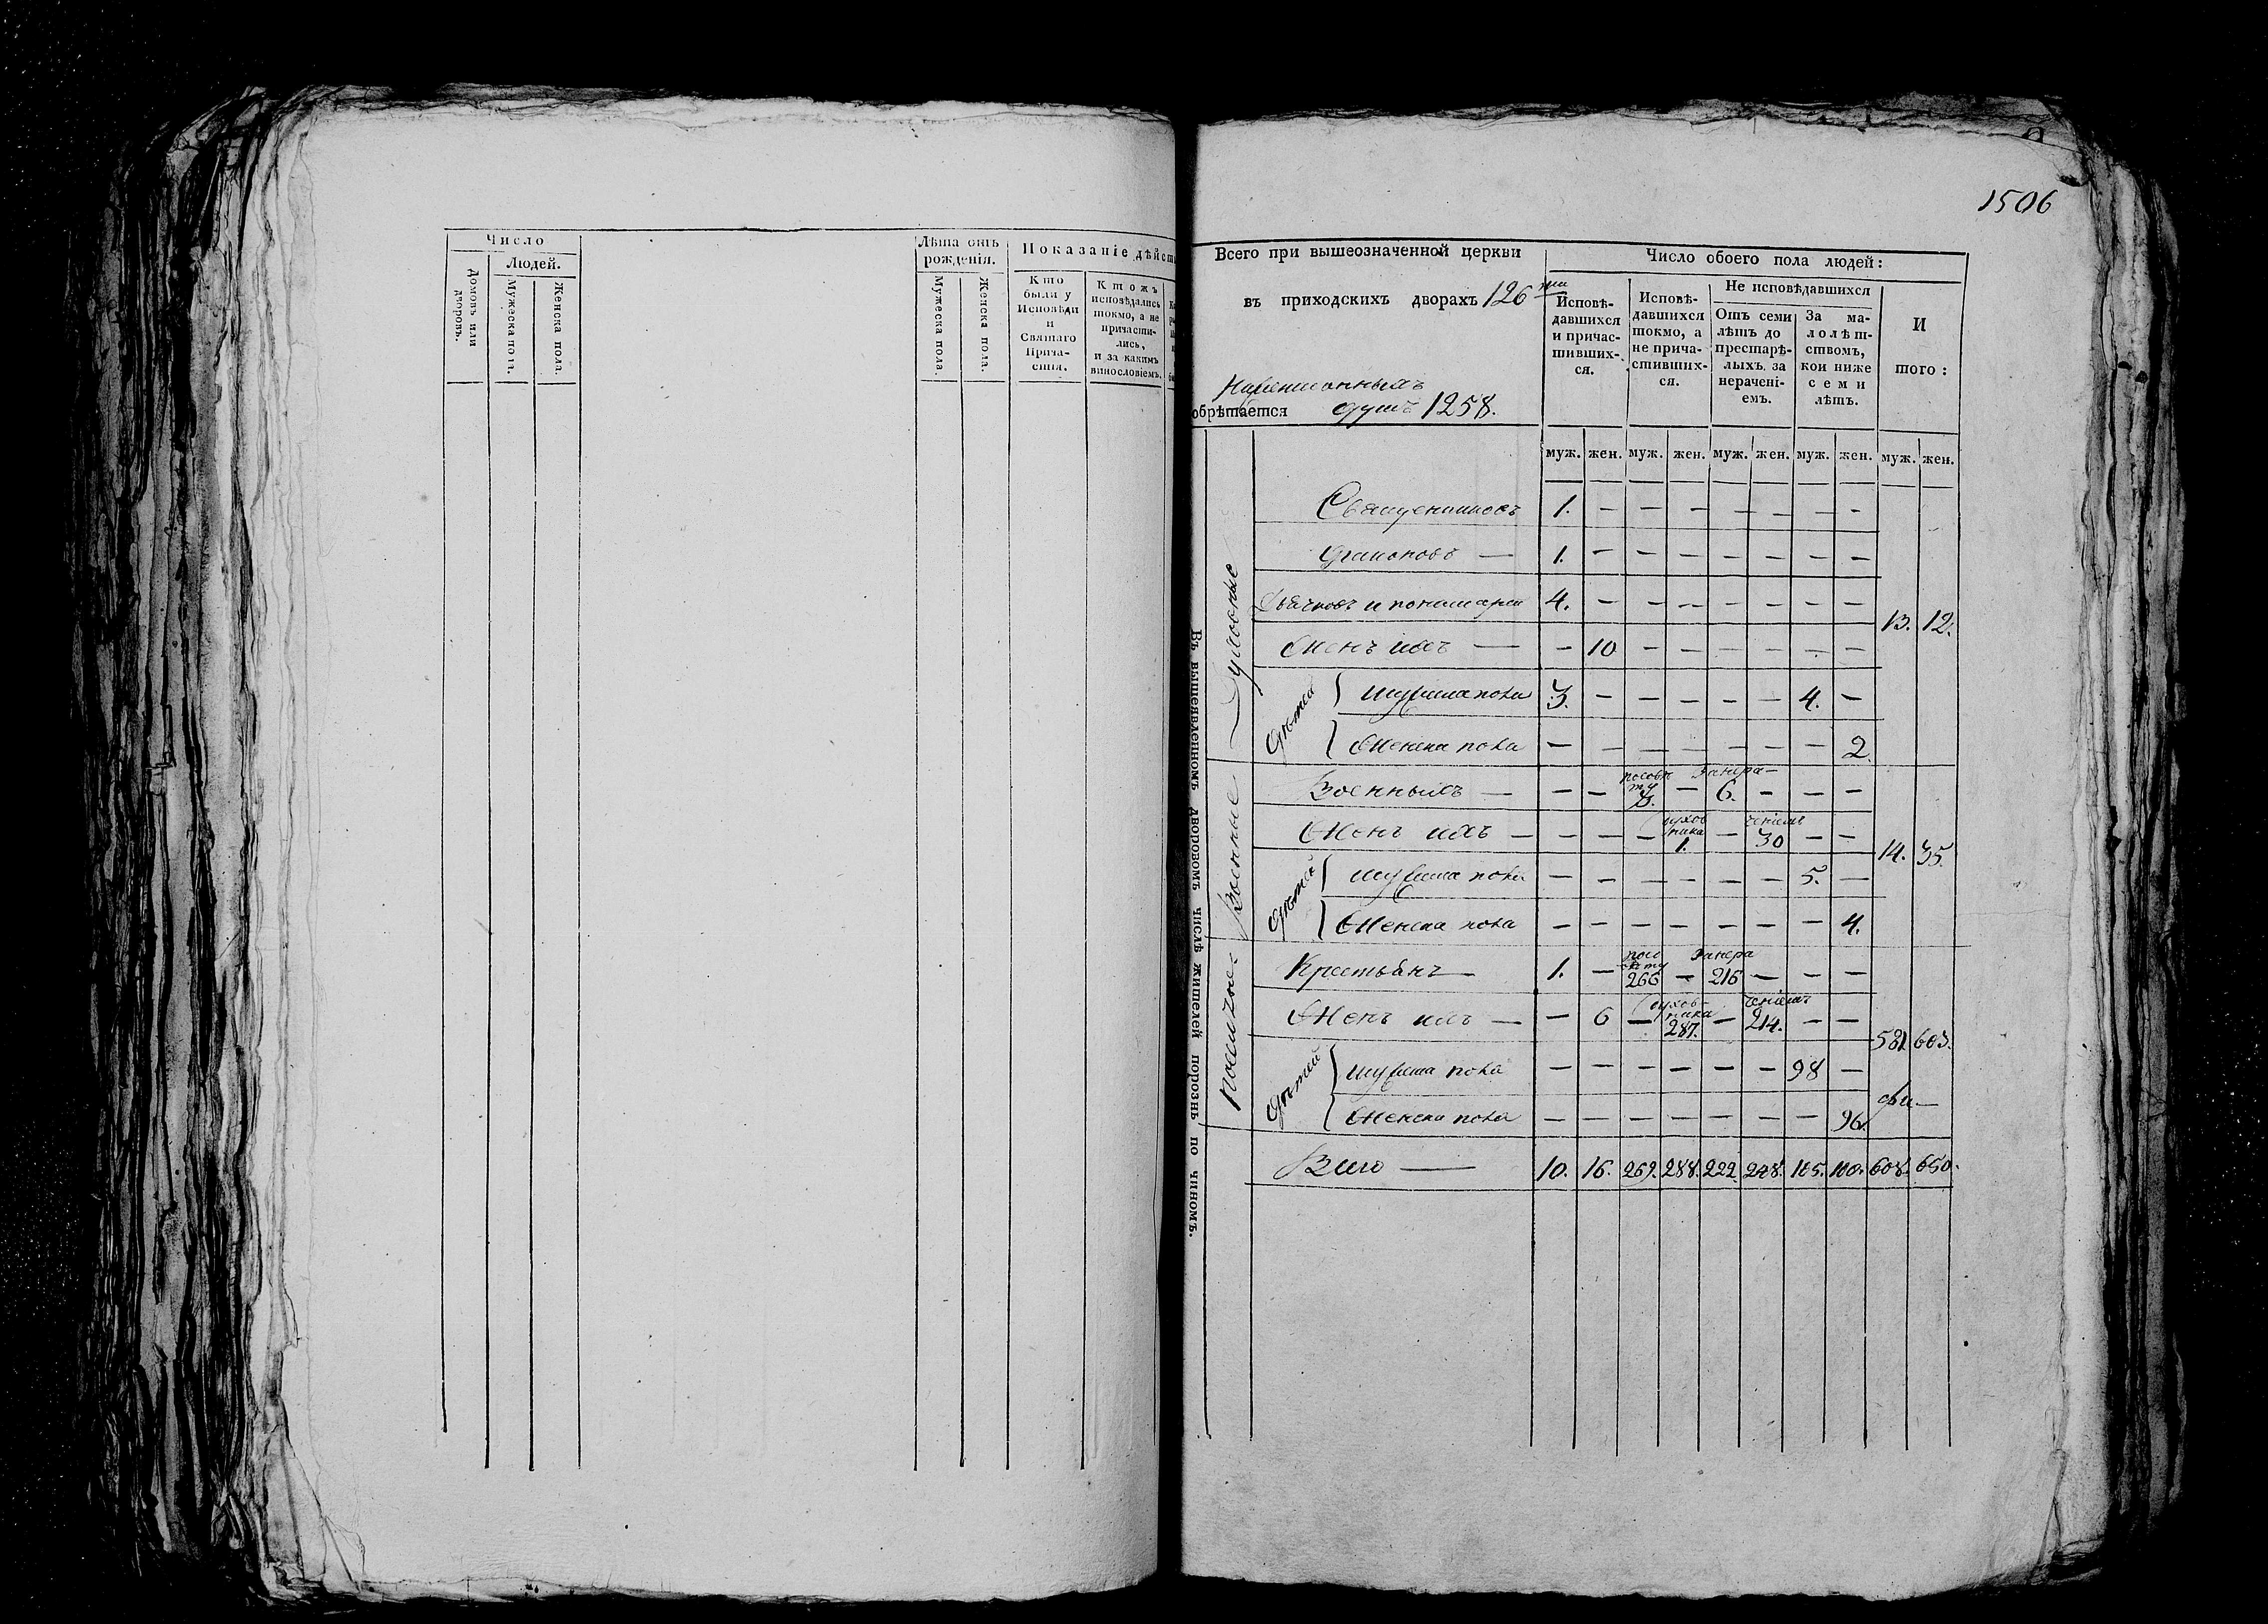 Число
Людей.
Домовъ или дворовъ.
Мужеска пола.
Женска пола.
Лѣта отъ рожденія.
Мужеска пола.
Женска пола.
Показаніе дѣйст
Кто были у Исповѣди и Святаго Прича-стія.
Ктожъ исповѣдались токмо, а не причасти-лись, и за какимъ винословіемъ.
1506
Всего при вышеозначенной церкви
въ приходскихъ дворахъ 126 ти
обрѣтается душъ 1258.
Число обоего пола людей:
Исповѣ-давшихся и причас-тивших-ся.
Исповѣ-давшихся токмо, а не прича-стивших-ся.
Не исповѣдавшихся
Отъ семи лѣтъ до престарѣ-лыхъ за нерачені-емъ.
За ма-лолѣт-ствомъ, кои ниже семи лѣтъ.
И того:
муж. жен. муж. жен. муж. жен. муж. жен. муж. жен.
Въ вышеявленномъ дворовомъ числѣ жителей порознь по чиномъ.
Духовные
Священниковъ 1. — — — — — — —
Диаконовъ — 1. — — — — — — —
Дьячковъ и понамарей 4. — — — — — — —
Женъ ихъ — — 10 — — — — — —
13. 12.
Дѣтей
мужеска пола 3. — — — — — 4. —
Женска пола — — — — — — — 2
Военные
Военныхъ — — — по совѣту 3. — Занера- 6. — — —
Женъ ихъ — — — — духовника 1. — ченіемъ 30 — —
14. 35.
Дѣтей
мужеска пола — — — — — — 5. —
Женска пола — — — — — — — 4.
Крестьянъ — 1. — по совѣту 266 — Занера 216 — — —
Женъ ихъ — — 6 — духов-ника 287. — ченіемъ 214. — —
581. 603.
Дѣтей
мужеска пола — — — — — — 98 —
Женска пола — — — — — — — 96.
Всего — 10. 16. 269. 288. 222. 248. 105. 100. 608. 650.